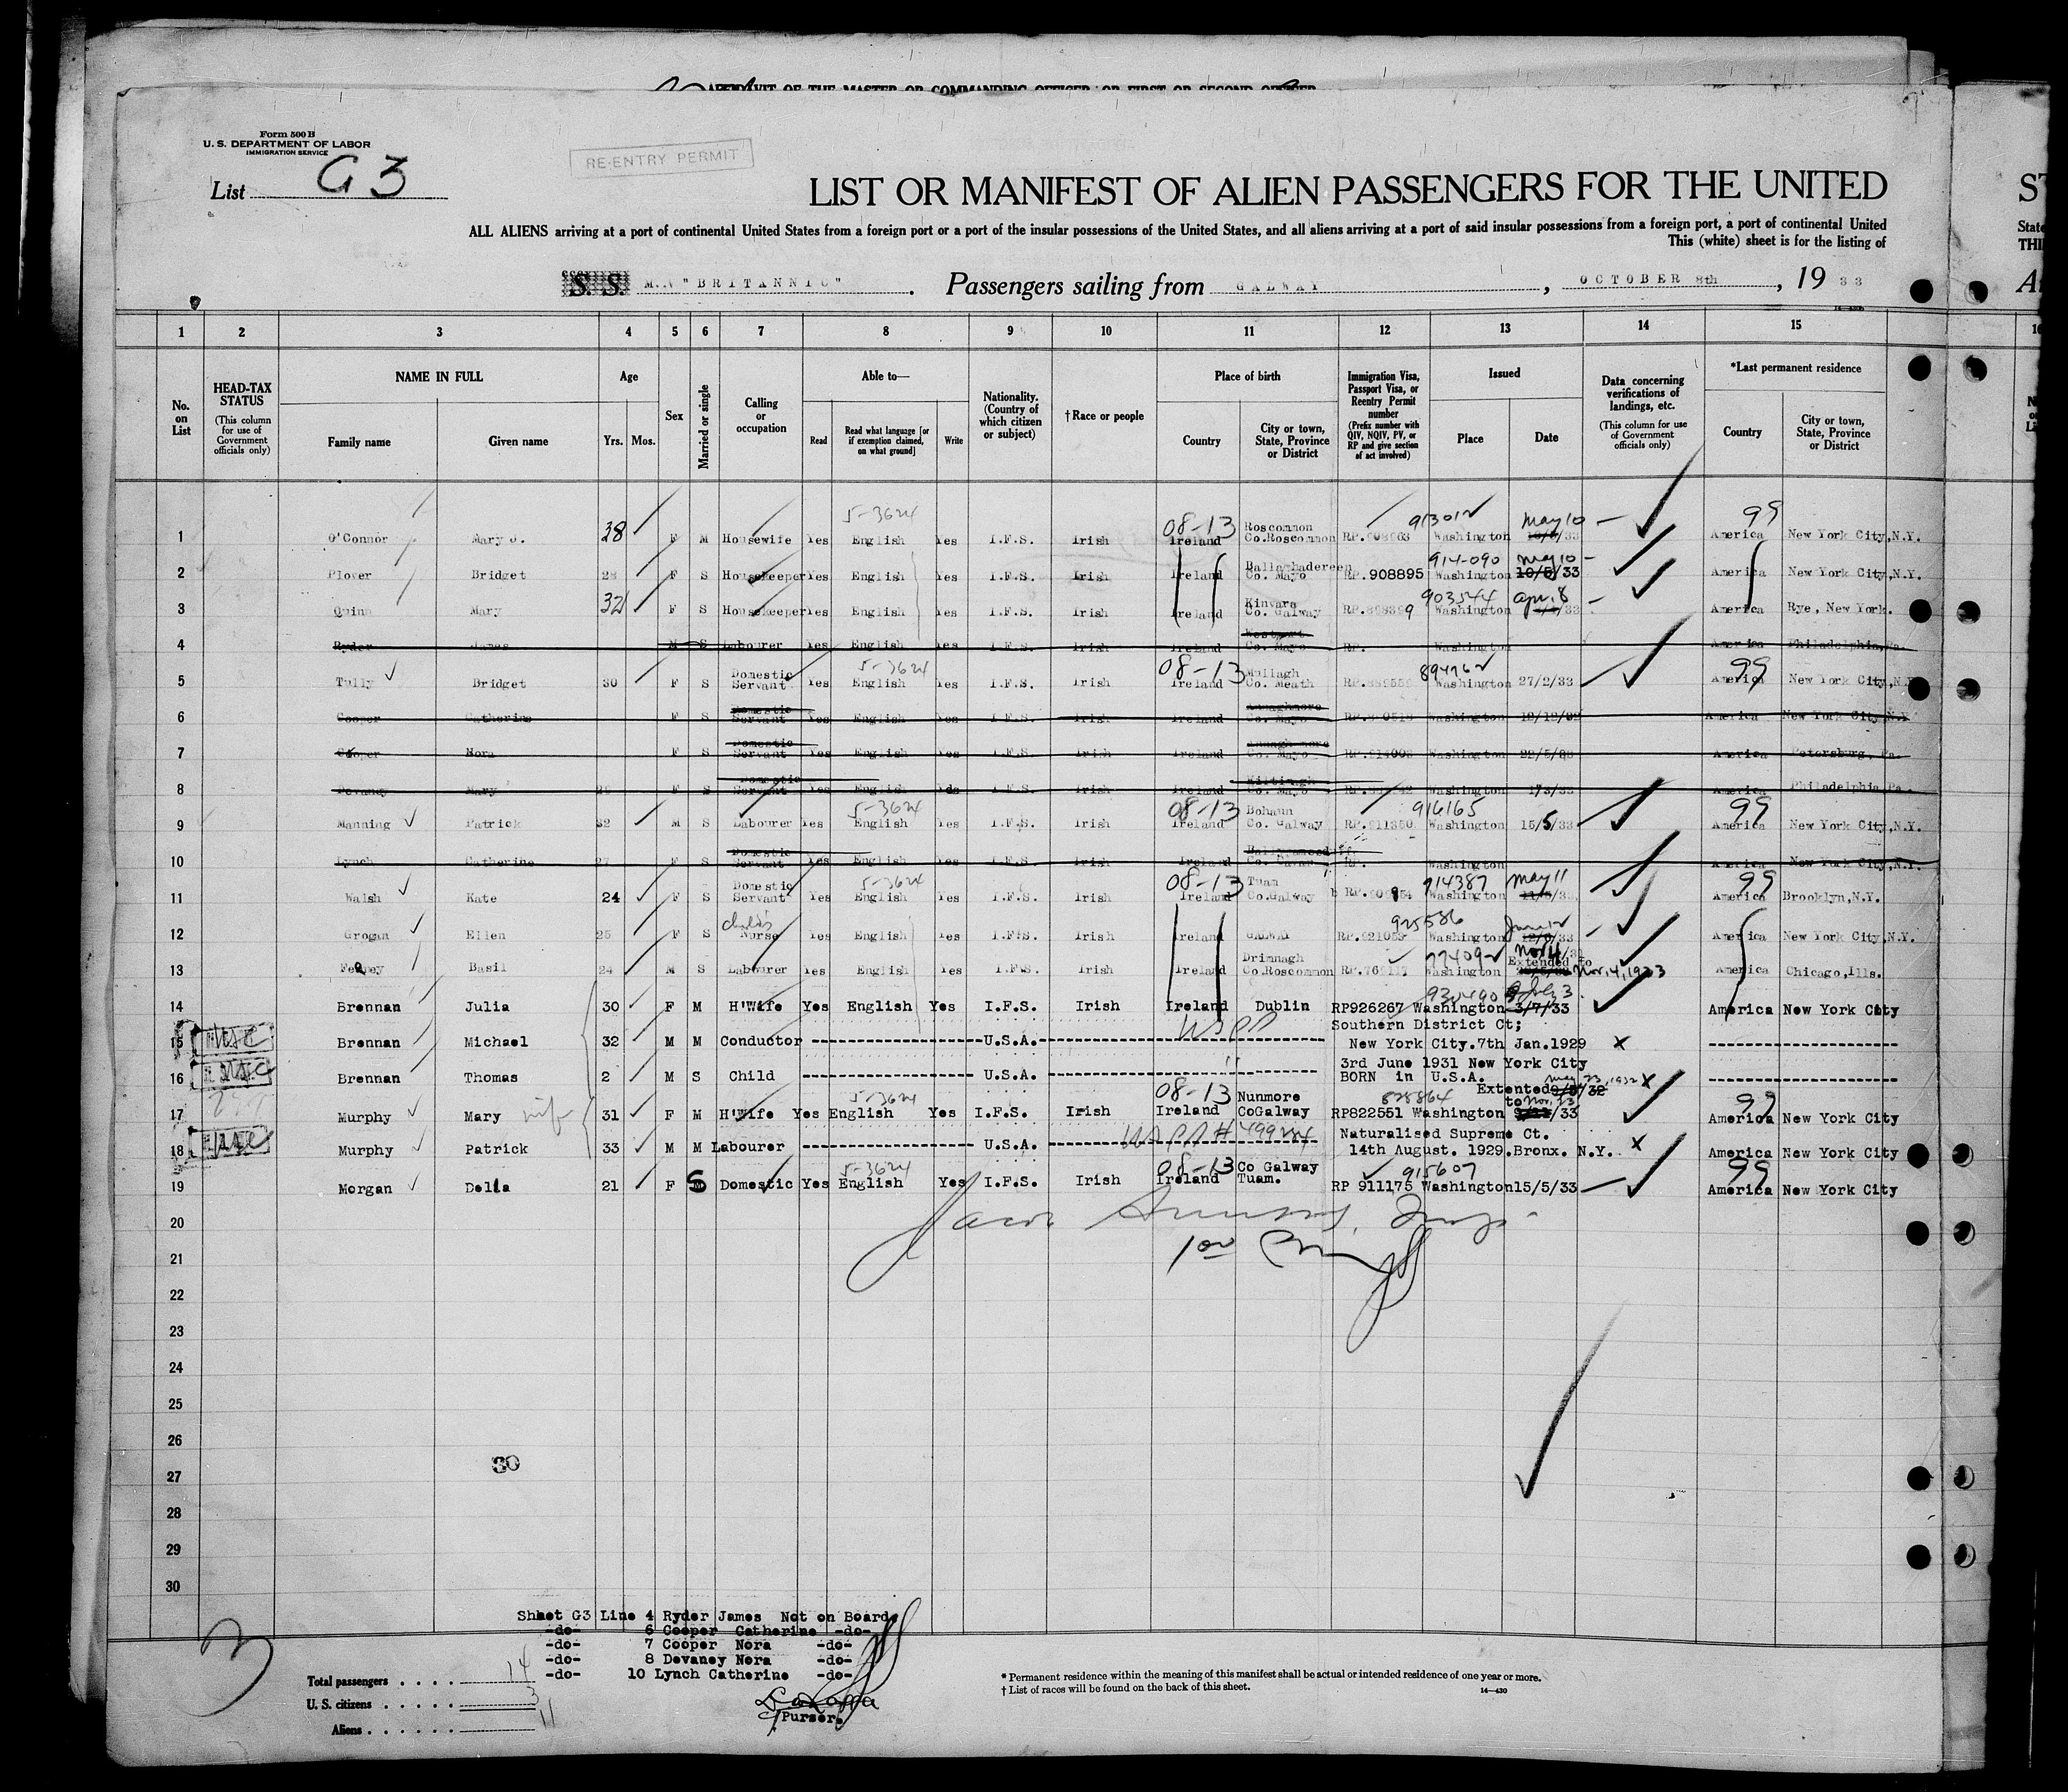 AFFIDAVIT OF THE MASTER OR COMMANDING OFFICER, OR FIRST OR SECOND OFFICER
Form 500 B
U. S. DEPARTMENT OF LABOR
IMMIGRATION SERVICE
RE-ENTRY PERMIT
List G 3
LIST OR MANIFEST OF ALIEN PASSENGERS FOR THE UNITED
ST
ALL ALIENS arriving at a port of continental United States from a foreign port or a port of the insular possessions of the United States, and all aliens arriving at a port of said insular possessions from a foreign port, a port of continental United
State
This (white) sheet is for the listing of
THI
S. S. M.V "BRITANNIC" . Passengers sailing from GALWAY , OCTOBER 8th , 19 33
1 2 3 4 5 6 7 8 9 10 11 12 13 14 15
No. on List
HEAD-TAX STATUS
(This column for use of Government officials only)
NAME IN FULL
Family name Given name
Age
Yrs. Mos.
Sex
Married or single
Calling or occupation
Able to—
Read Read what language [or if exemption claimed, on what ground] Write
Nationality. (Country of which citizen or subject)
†Race or people
Place of birth
Country City or town, State, Province or District
Immigration Visa, Passport Visa, or Reentry Permit number
(Prefix number with QIV, NQIV, PV, or RP and give section of act involved)
Issued
Place Date
Data concerning verifications of landings, etc.
(This column for use of Government officials only)
*Last permanent residence
Country City or town, State, Province or District
5-3624 08-13 Roscommon 91301 May 10 99
1 O'Connor Mary J. 38 F M Housewife Yes English Yes I.F.S. Irish Ireland Co.Roscommon Washington America New York City,N.Y.
Ballaghadereen 914090 May 10
2 Plover Bridget F S Housekeeper Yes English Yes I.F.S. Irish Ireland Co. Mayo RP.908895 Washington 10/5/33 America New York City,N.Y.
Kinvara 903544 Apr. 8
3 Quinn Mary 32 F S Housekeeper Yes English Yes I.F.S. Irish Ireland Co. Galway Washington America Rye, New York.
Westport
4 Ryder James M S Labourer Yes English Yes I.F.S. Irish Ireland Co. Mayo RP. Washington America Philadelphia,Pa.
Domestic 5-3624 08-13 Mullagh 99
5 Tully Bridget 30 F S Servant Yes English Yes I.F.S. Irish Ireland Co. Meath Washington 27/2/33 America New York City,N.Y.
Domestic
6 Cooper Catherine F S Servant Yes English Yes I.F.S. Irish Ireland Co. Mayo Washington America New York City,N.Y.
Domestic
7 Cooper Nora F S Servant Yes English Yes I.F.S. Irish Ireland Co. Mayo Washington America Petersburg, Pa.
Domestic Kiltimagh
8 Devaney Mary F S Servant Yes English Yes I.F.S. Irish Ireland Co. Mayo Washington America Philadelphia,Pa.
5-3624 08-13 Bohaun 916165 99
9 Manning Patrick 32 M S Labourer Yes English Yes I.F.S. Irish Ireland Co. Galway RP.911350 Washington 15/5/33 America New York City,N.Y.
Domestic
10 Lynch Catherine 27 F S Servant Yes English Yes I.F.S. Irish Ireland RP. Washington America New York City,N.Y.
Domestic 5-3624 08-13 Tuam 914387 May 11 99
11 Walsh Kate 24 F S Servant Yes English Yes I.F.S. Irish Ireland Co.Galway Washington America Brooklyn,N.Y.
Child's 925586 June 12
12 Grogan Ellen 25 F S Nurse Yes English Yes I.F.S. Irish Ireland GALWAY Washington America New York City,N.Y.
Drimnagh Extended to Nov. 4, 1933
13 Basil 24 M S Labourer Yes English Yes I.F.S. Irish Ireland Co.Roscommon Washington America Chicago,Ills.
July 3
14 Brennan Julia 30 F M H'Wife Yes English Yes I.F.S. Irish Ireland Dublin RP926267 Washington 3/7/33 America New York City
Southern District Ct;
15 Brennan Michael 32 M M Conductor U.S.A. New York City.7th Jan.1929 x
3rd June 1931 New York City
16 Brennan Thomas 2 M S Child U.S.A. BORN in U.S.A. x
5-3624 08-13 Nunmore 828864 Extented May 23, 1932 to Nov. 23 99
17 Murphy Mary wife 31 F M H'Wife Yes English Yes I.F.S. Irish Ireland CoGalway RP822551 Washington /33 America New York City
Naturalised Supreme Ct.
18 Murphy Patrick 33 M M Labourer U.S.A. 14th August. 1929.Bronx. N.Y. x America New York City
5-3624 08-13 Co Galway 915607 99
19 Morgan Delia 21 F S Domestic Yes English Yes I.F.S. Irish Ireland Tuam. RP 911175 Washington 15/5/33 America New York City
20
21
22
23
24
25
26
27
28
29
30
30
Sheet G3 Line 4 Ryder James Not on Board
-do- 6 Cooper Catherine -do-
-do- 7 Cooper Nora -do-
-do- 8 Devaney Nora -do-
-do- 10 Lynch Catherine -do-
Purser.
3
Total passengers . . . . 14
U. S. citizens . . . . . 3
Aliens . . . . . . 11
* Permanent residence within the meaning of this manifest shall be actual or intended residence of one year or more.
† List of races will be found on the back of this sheet.
14—430